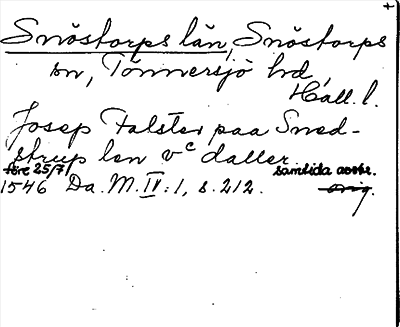 +
Snöstorps län, Snöstorps
sn, Tönnersjö hd,
Hall. l.
Josep Falster paa Sned-
strup len vc daller
före 25/7 samtida avskr.
1546 Da. M. IV:1, s. 212. orig.